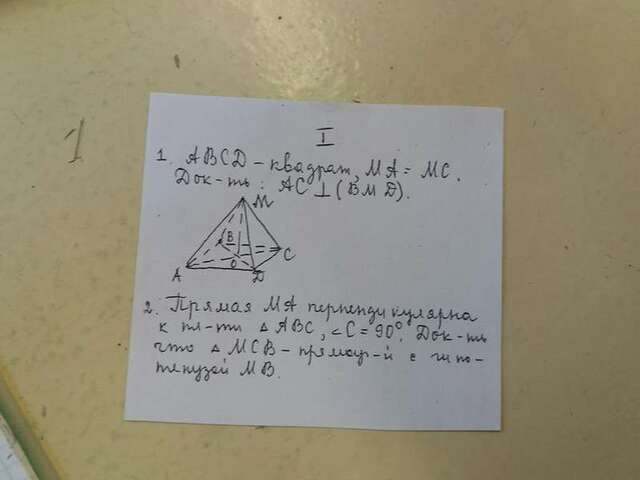 I
1. ABCD – квадрат, MA = MC.
Док-ть: AC ⊥ (BMD).
M
B
C
A
O
D
2. Прямая MA перпендикулярна
к пл-ти △ABC, ∠C = 90°. Док-ть
что △MCB – прямоуг-й с гипо-
тенузой MB.